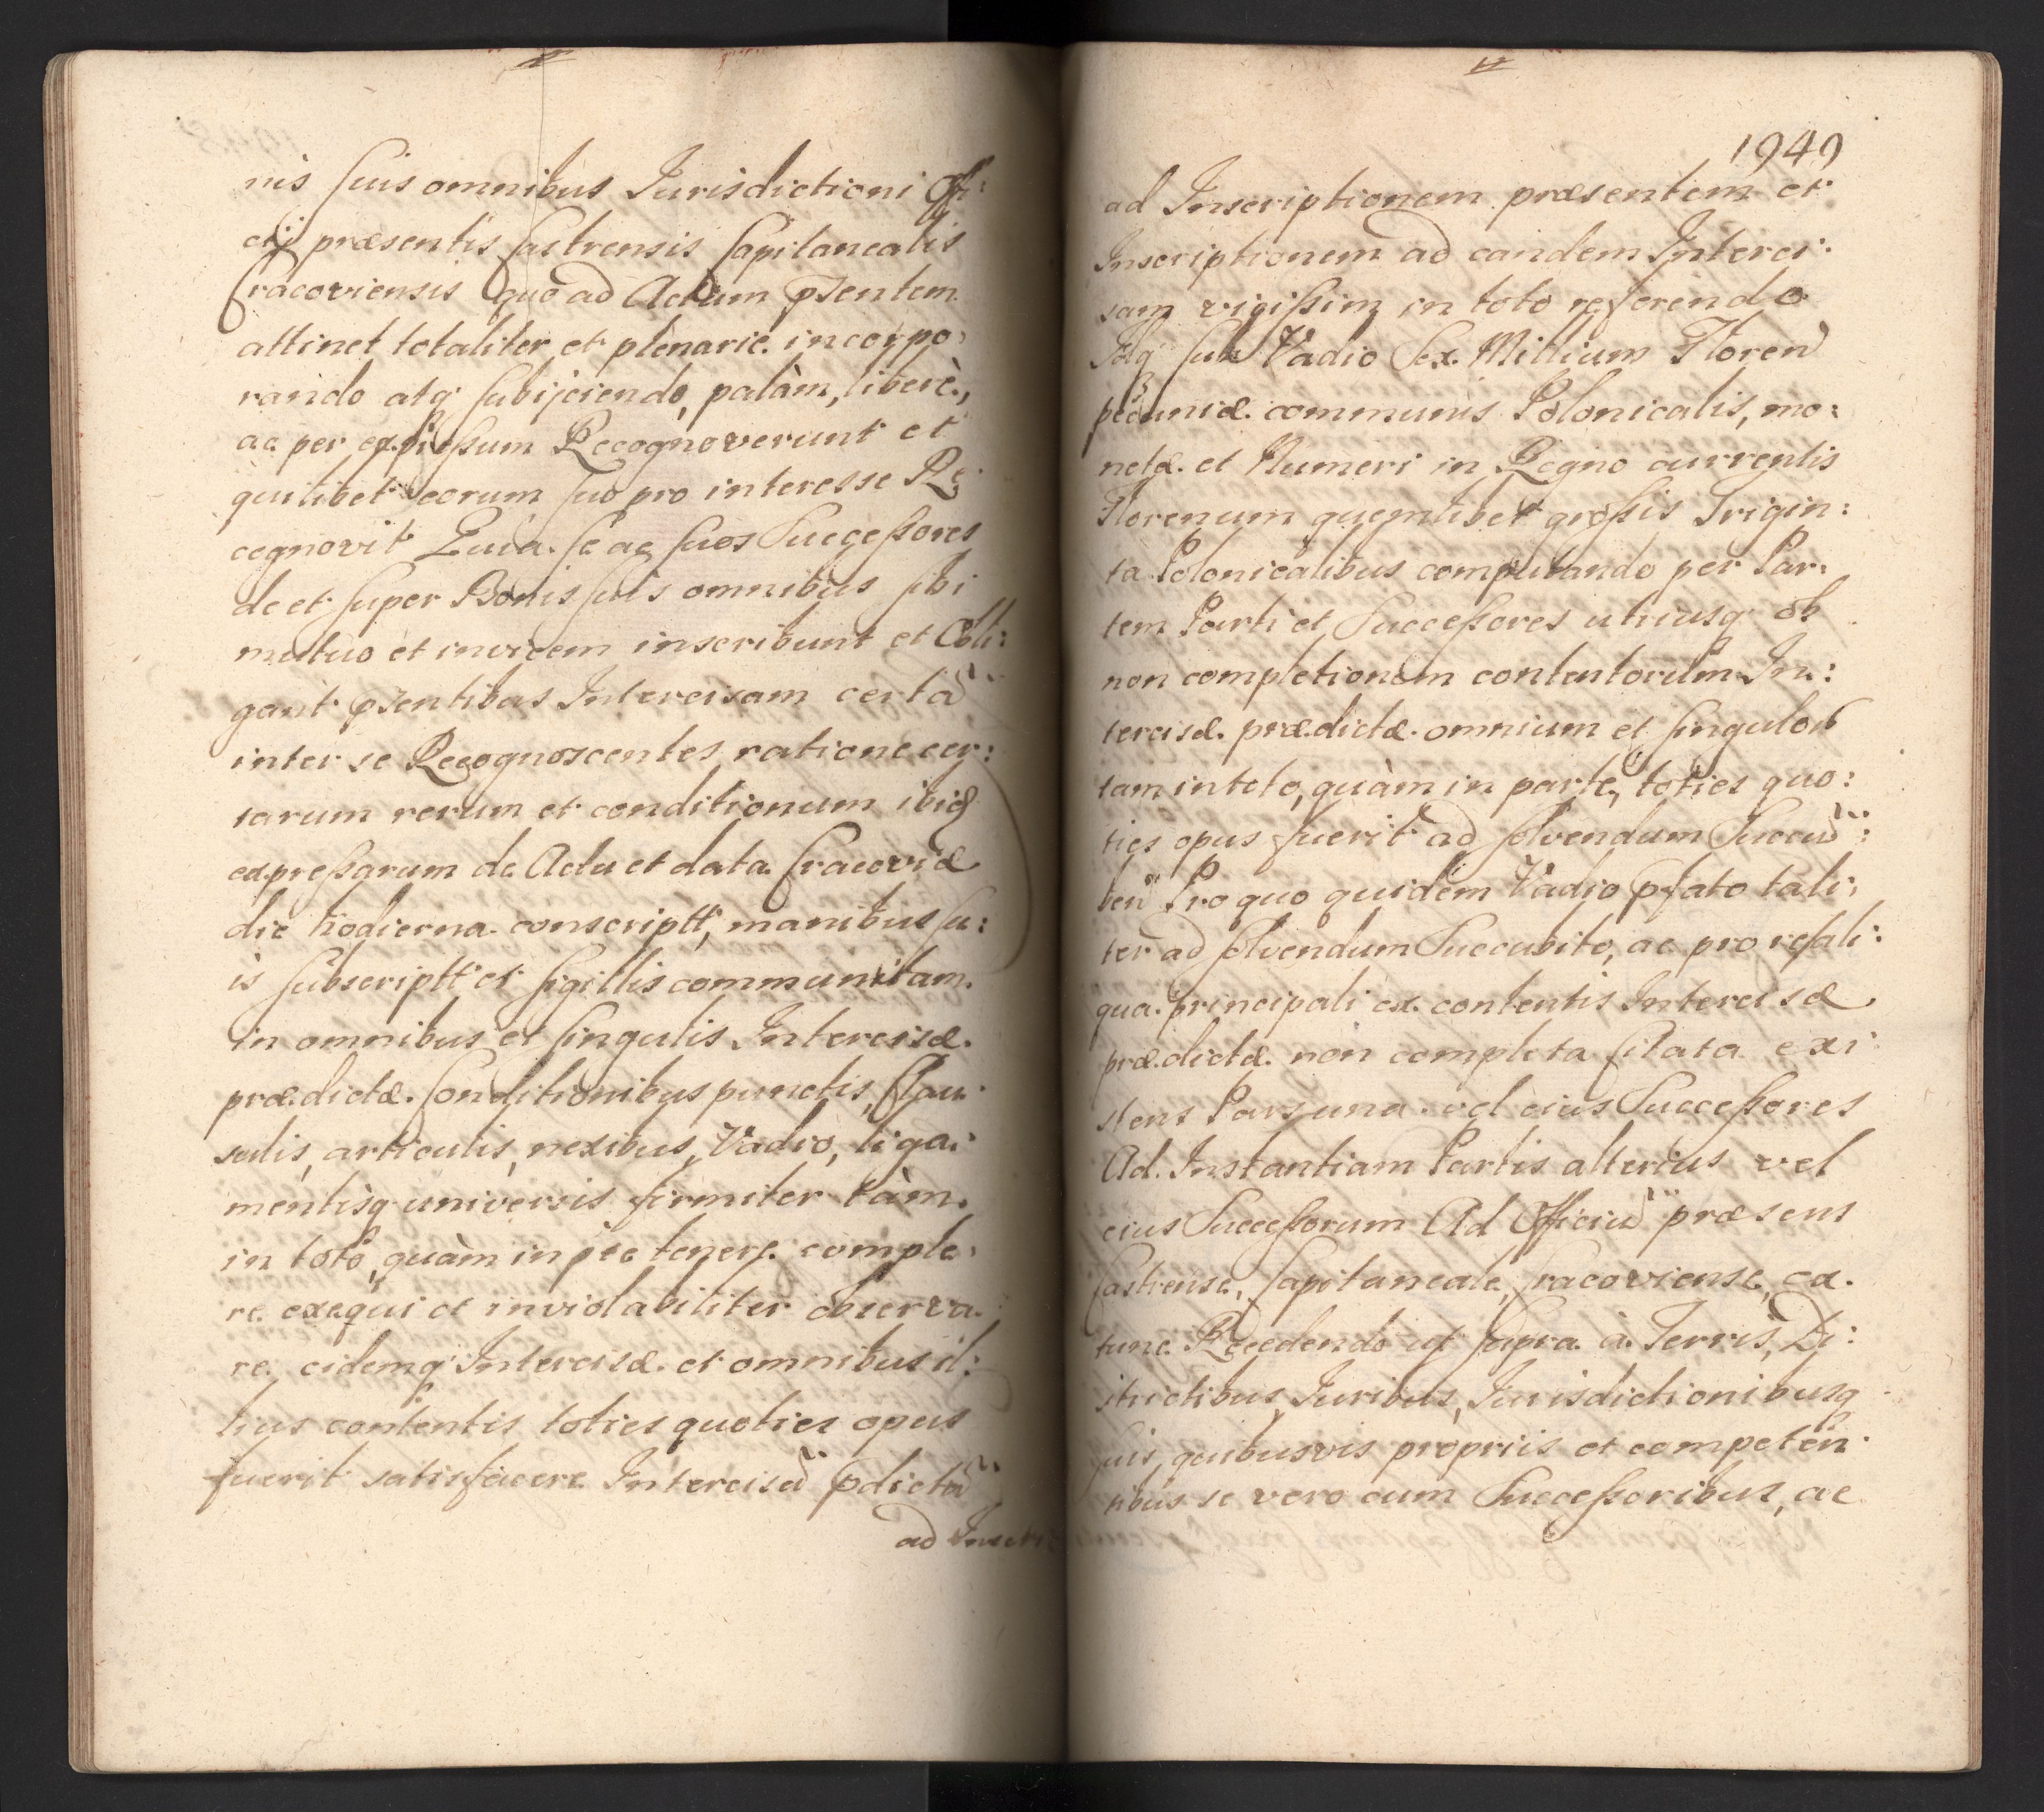 nis suis omnibus Jurisdictioni Offi:
cij præsentis Castrensis Capitanealis
Cracoviensis quo ad Actum pñtem
attinet totaliter et plenarie incorpo:
rando atq subijciendo, palàm, liberè,
ac per expressum Recognoverunt et
quilibet eorum suo pro interesse Re:
cognovit Quia se ac suos Successores
de et super Bonis suis omnibus sibi
mutuo et invicem inscribunt et Obli:
gant pñtibus Intercisam certã
inter se Recognoscentes ratione cer:
tarum rerum et conditionum ibid
expressarum de Actu et data Cracoviæ
die hodierna conscriptt, manibus su:
is subscriptt et sigillis communitam
in omnibus et singulis Intercisæ
prædictæ Conditionibus punctis, Clau:
sulis, articulis, nexibus, Vadio, liga:
mentisq universis firmiter tàm
in toto, quàm in pte tenere comple:
re exequi et inviolabiliter observa:
re eidemq Intercisæ et omnibus il:
lius contentis toties quoties opus
fuerit satisfacere Intercisã pdictã
ad Inscri
1949
ad Inscriptionem præsentem et
Inscriptionem ad eandem Interci:
sam vigissim in toto referendo
Idq sub Vadio Sex Millium Floren
pecuniæ communis Polonicalis, mo:
netæ et Numeri in Regno currentis
Florenum quemlibet grossis Trigin:
ta Polonicalibus computando per Par:
tem Parti et Successores utriusq ob
non completionem contentorum In:
tercisæ prædictæ omnium et singulor
tam in toto, quàm in parte, toties quo:
ties opus fuerit ad solvendum Succũ:
ben Pro quo quidem Vadio pfato tali:
ter ad solvendum Succubito, ac pro re sali:
qua principali ex contentis Intercisæ
prædictæ non completa Citata exi
stens Pars una vel eius Successores
Ad Instantiam Partis alterius vel
eius Successorum Ad Officiũ præsens
Castrense, Capitaneale, Cracoviense, ex
tunc Recedendo ut supra à Terris, Di:
strictibus, Juribus, Jurisdictionibusq
suis, quibusvis propriis et competen
tibus se vero cum Successoribus, ac